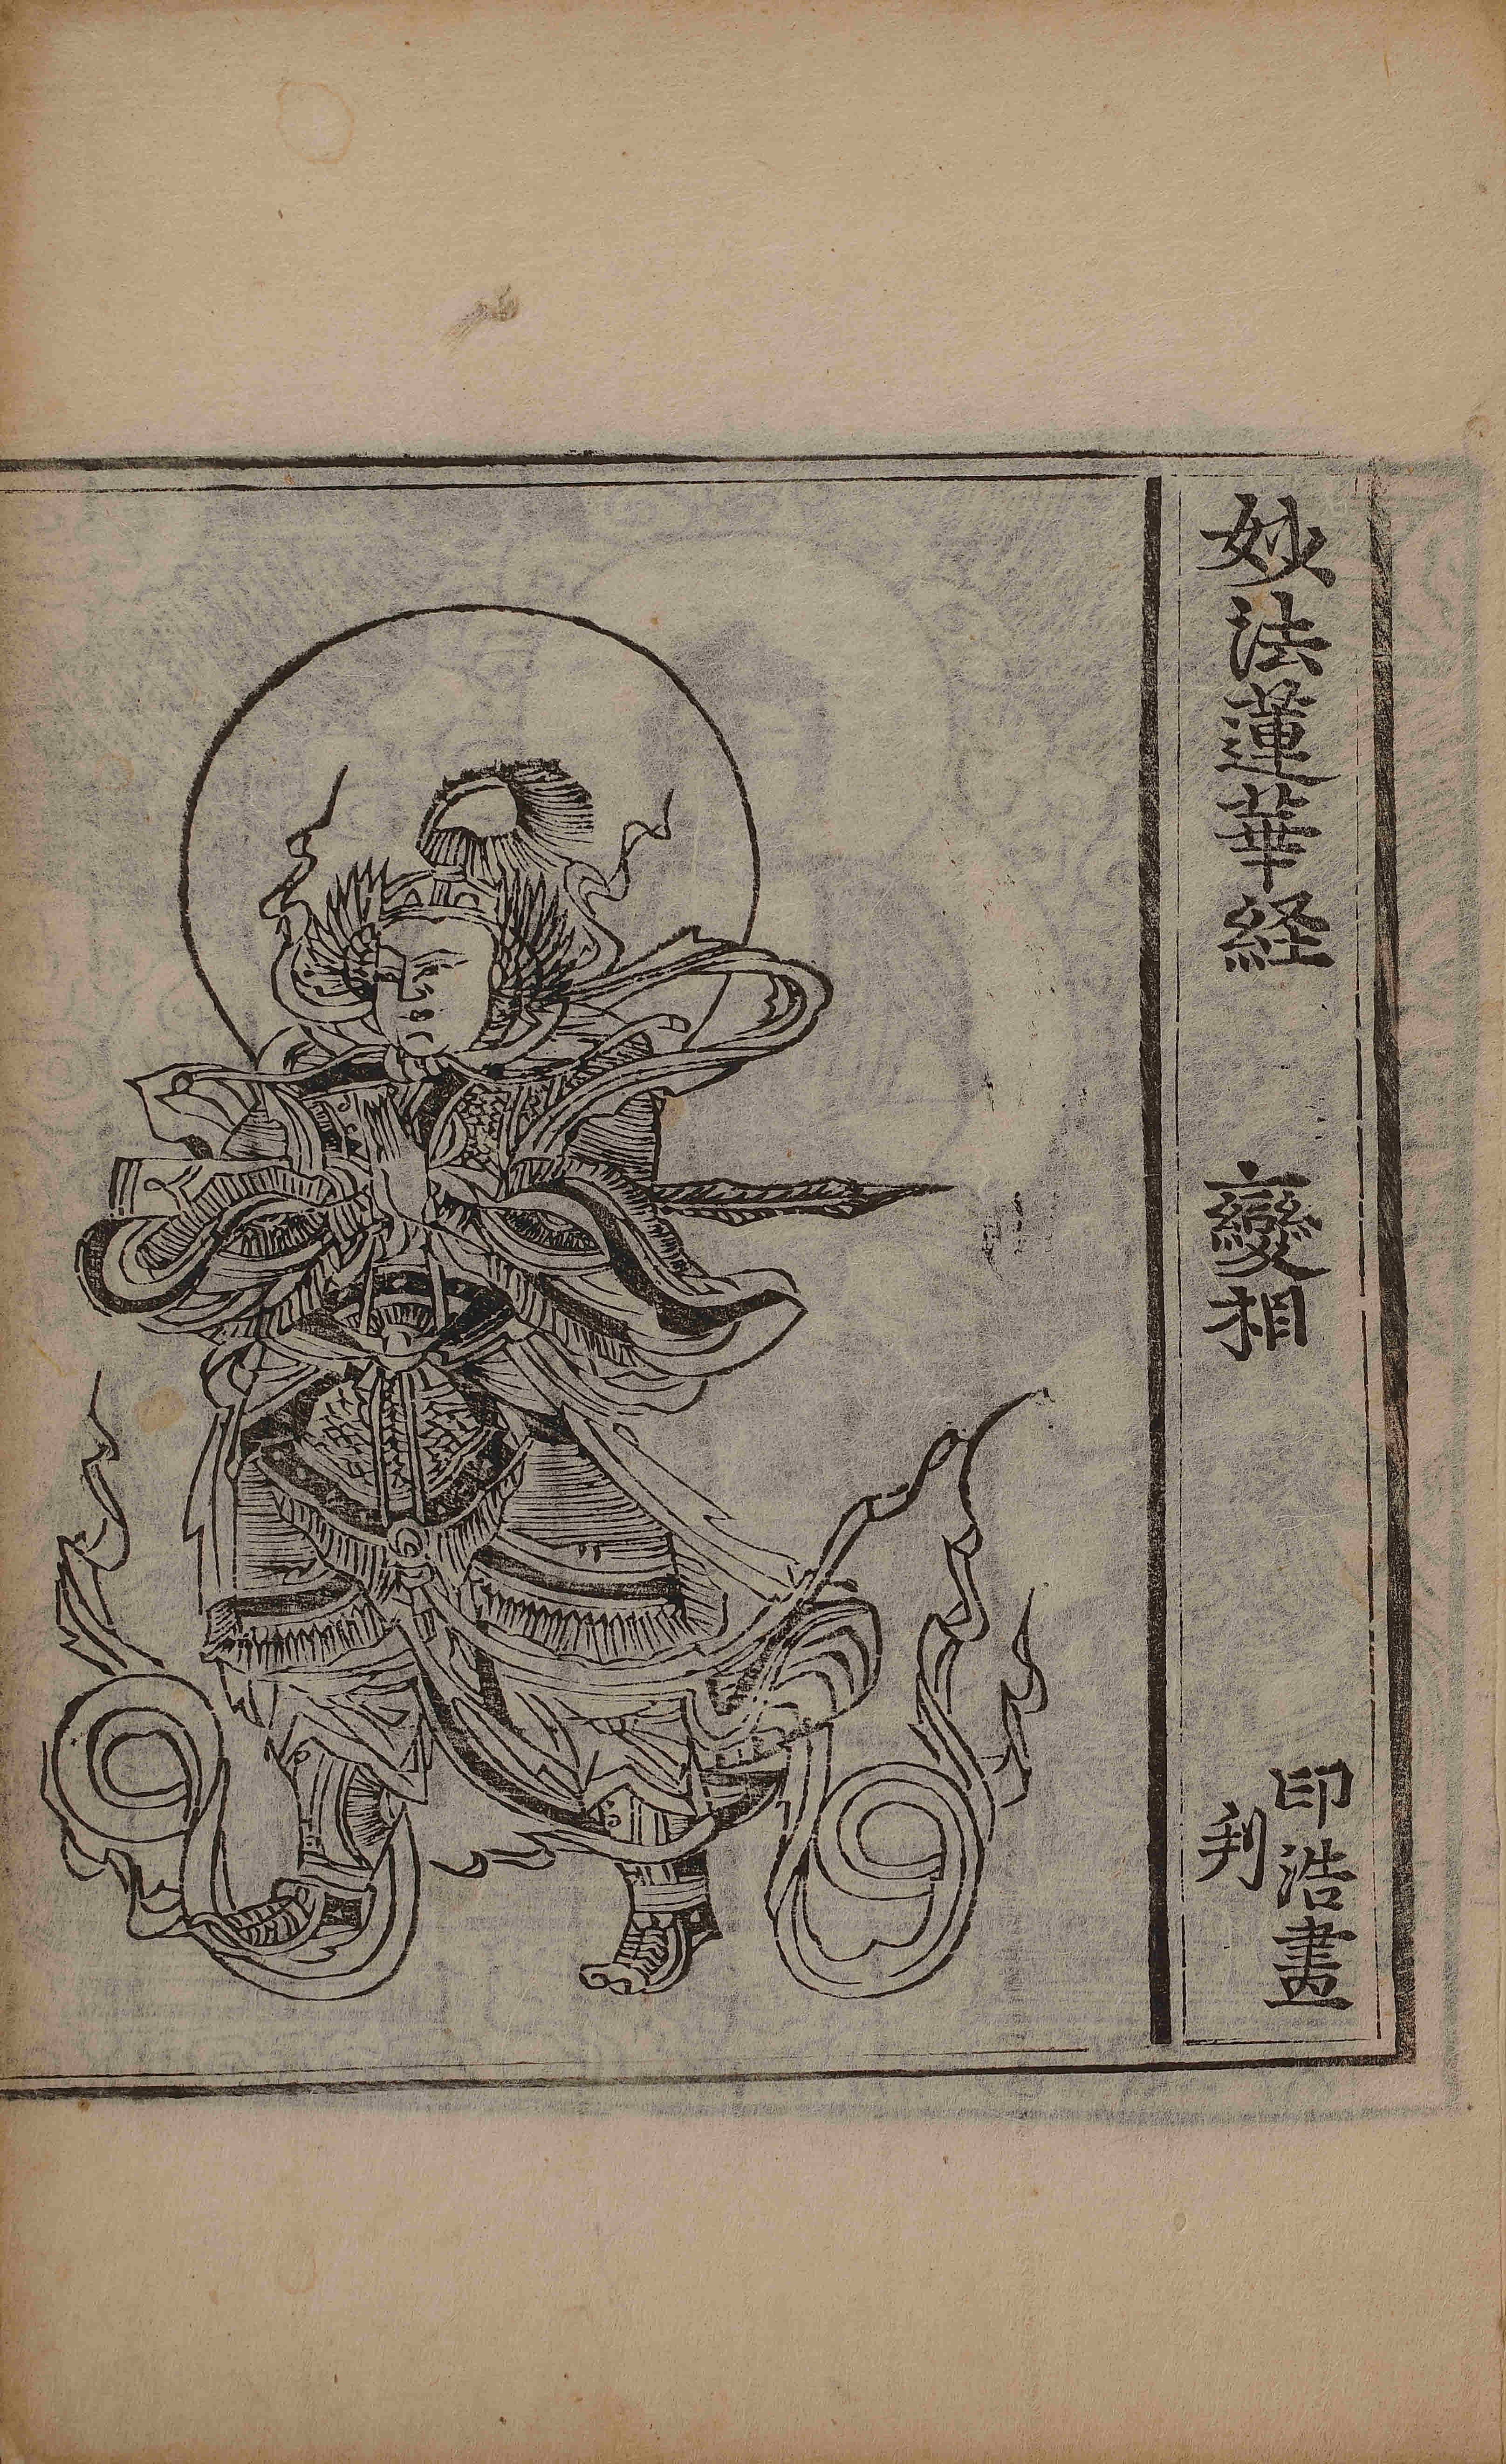 妙法蓮華経 變相
印浩畫
刋